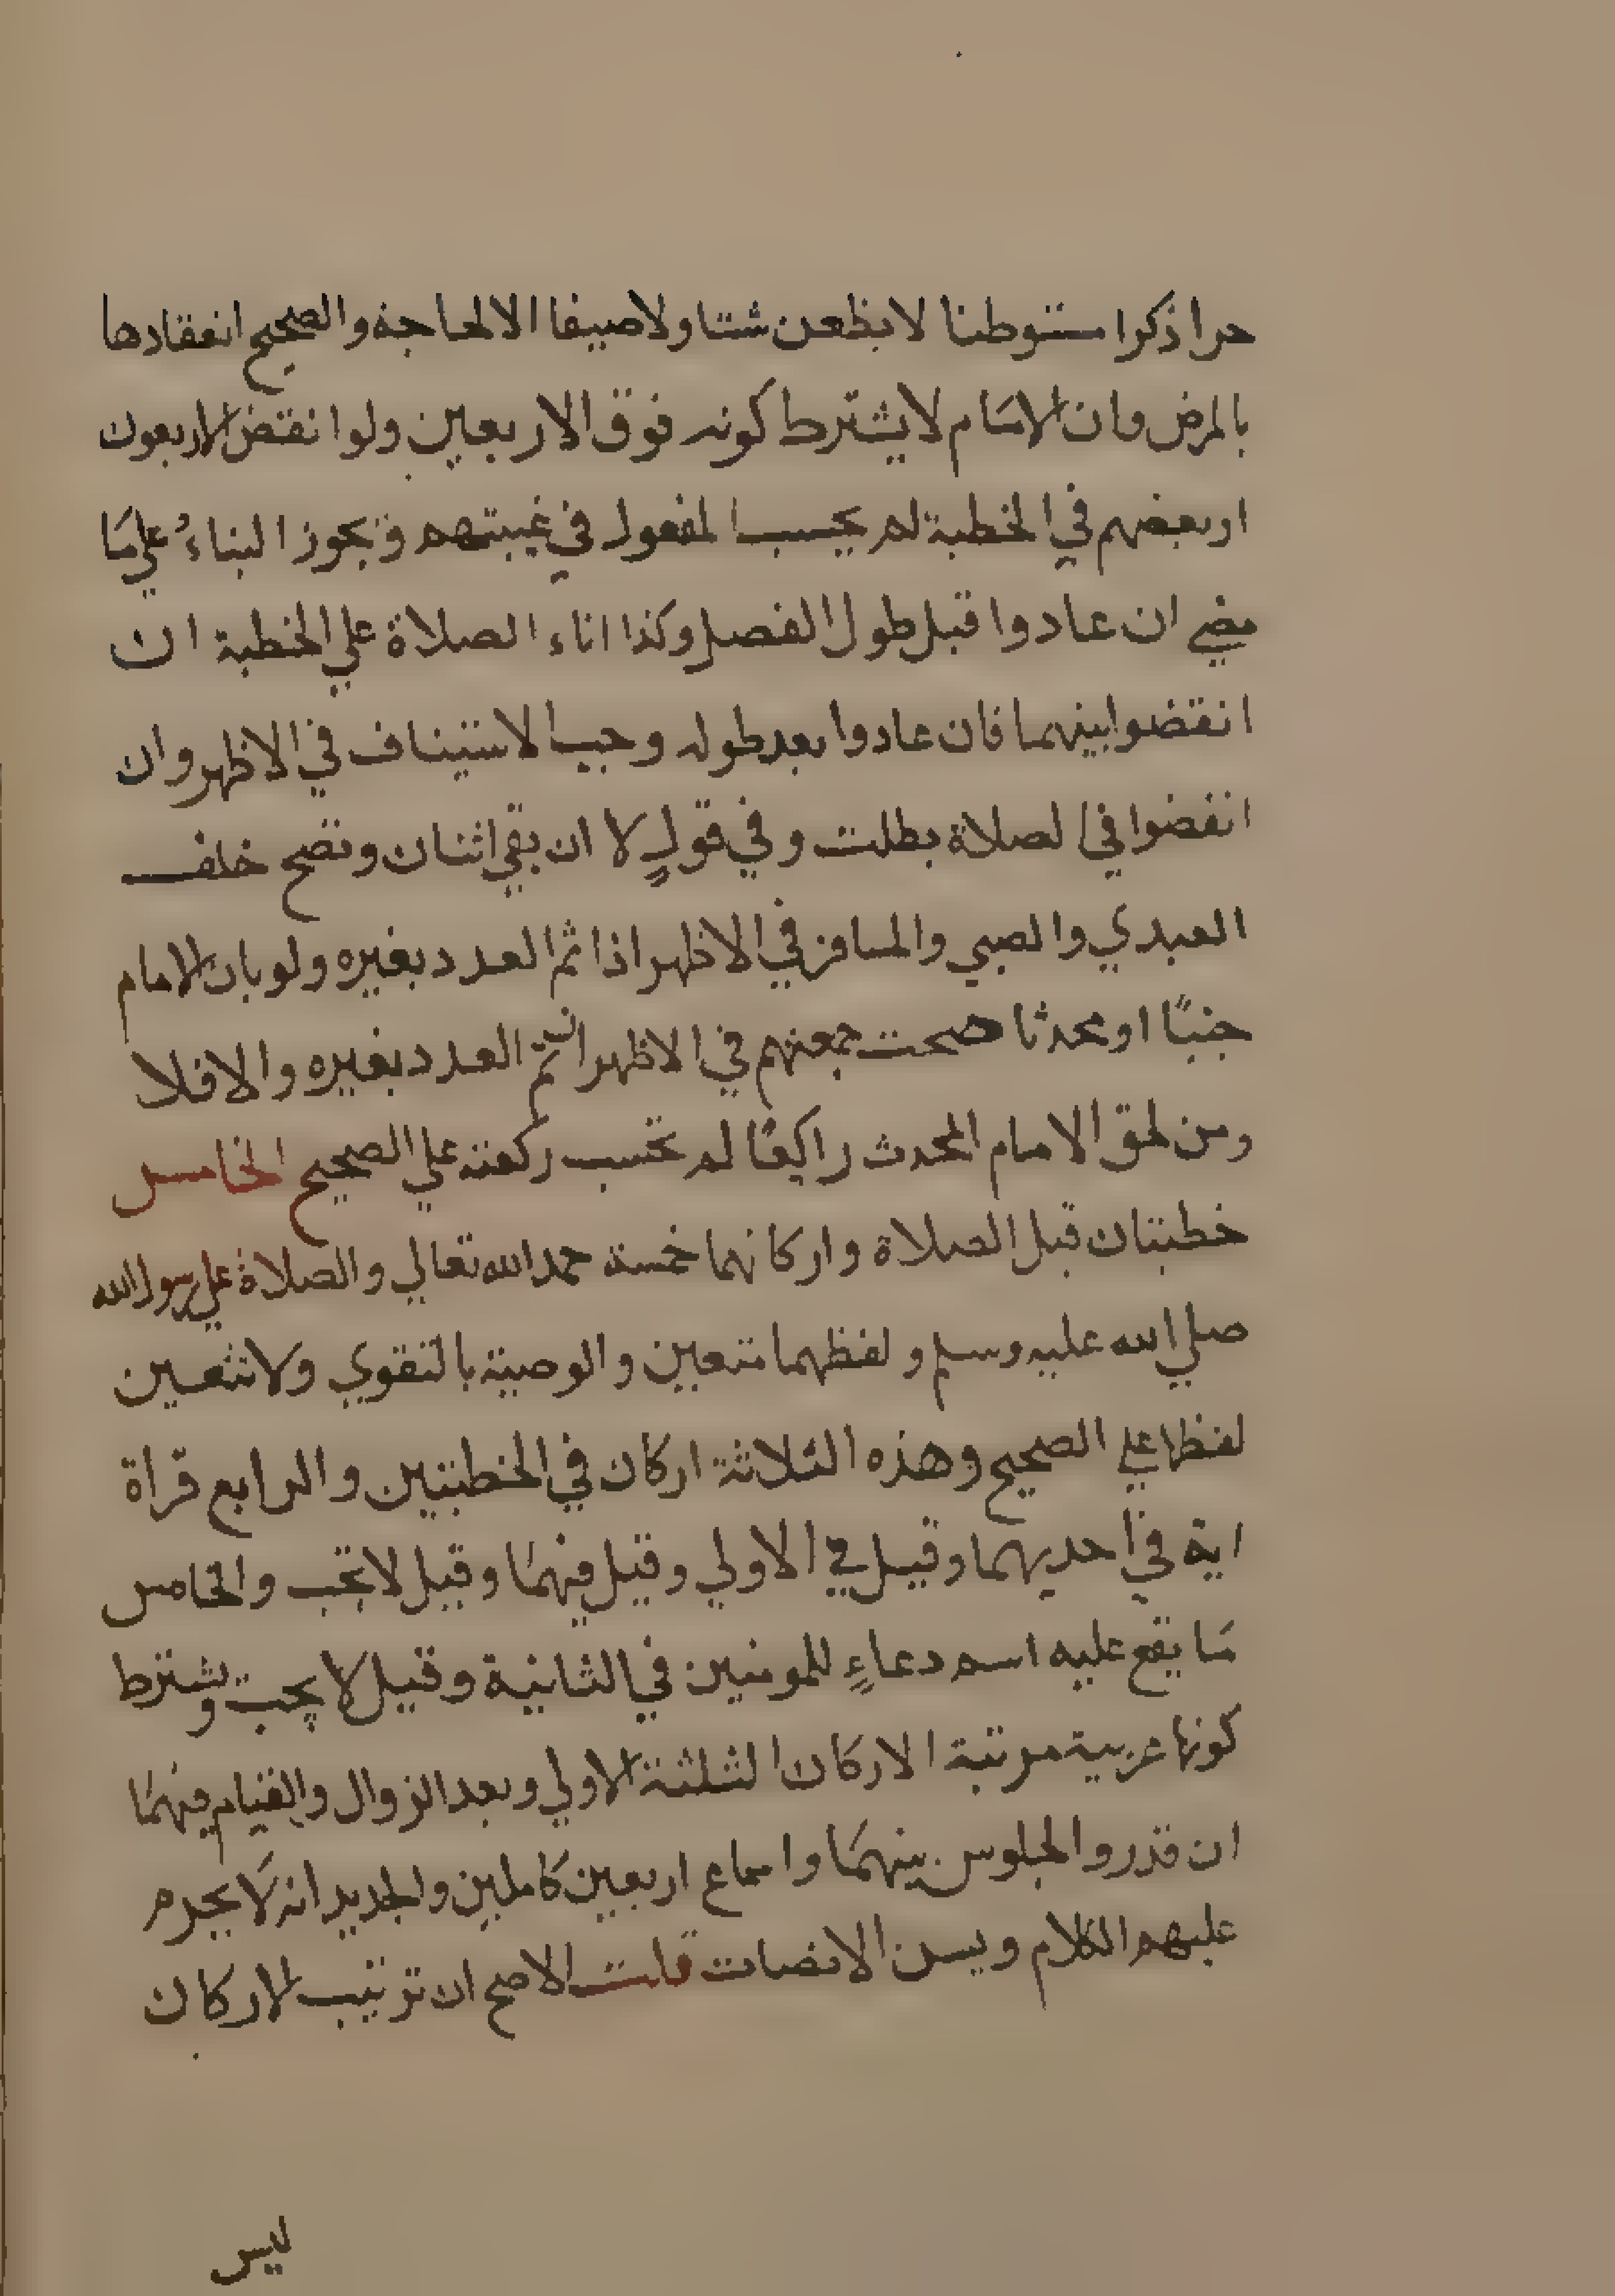 حرا ذكرا مستوطنا لا يظعن شتا ولا صيفا الا لحاجة والصحيح انعقادها
بالمرض وان الامَام لا يشترط كونه فوق الاربعين ولو انفض الاربعون
او بعضهم في الخطبة لم يحسب المفعول في غيبتهم ويجوز البناءُ علي مَا
مضي ان عادوا قبل طول الفصل وكذا اناء الصلاة علي الخطبة ان
انفضوا بينهما فان عادوا بعد طوله وجب الاستيناف في الاظهر وان
انفضوا في الصلاة بطلت وفي قولٍ لا ان بقي اثنان وتصح خلف
العبدي والصبي والمسافر في الاظهر اذا تم العدد بغيره ولو بان الامام
جنبًا او محدثا صحت جمعتهم في الاظهر ان تم العدد بغيره والا فلا
ومن لحق الامام المحدث راكعًا لم تحسب ركعته علي الصحيح الخامس
خطبتان قبل الصلاة واركانهما خمسة حمد الله تعالي والصلاة علي رسول الله
صلي الله عليه وسلم ولفظهما متعين والوصية بالتقوي ولا تتعين
لفظها علي الصحيح وهذه الثلاثة اركان في الخطبتين والرابع قراة
اية في احديهما وقيل في الاولي وقيل فيهمَا وقيل لا تجب والخامس
مَا يقع عليه اسم دعاءٍ للمومنين في الثانية وقيل لا يجب ويشترط
كونها عربية مرتبة الاركان الثلثة الاولي وبعد الزوال والقيام فيهمَا
ان قدر والجلوس بينهمَا واسماع اربعين كاملين والجديد انه لَا يحرم
عليهم الكلام ويسن الانصات قلت الاصح ان ترتيب الاركان
ليس